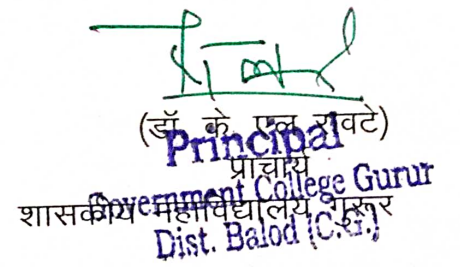 (डॉ. के. एल. रावटे)
Principal
प्राचार्य
Government College Gurur
शासकीय महाविद्यालय गुरूर
Dist. Balod (C.G.)